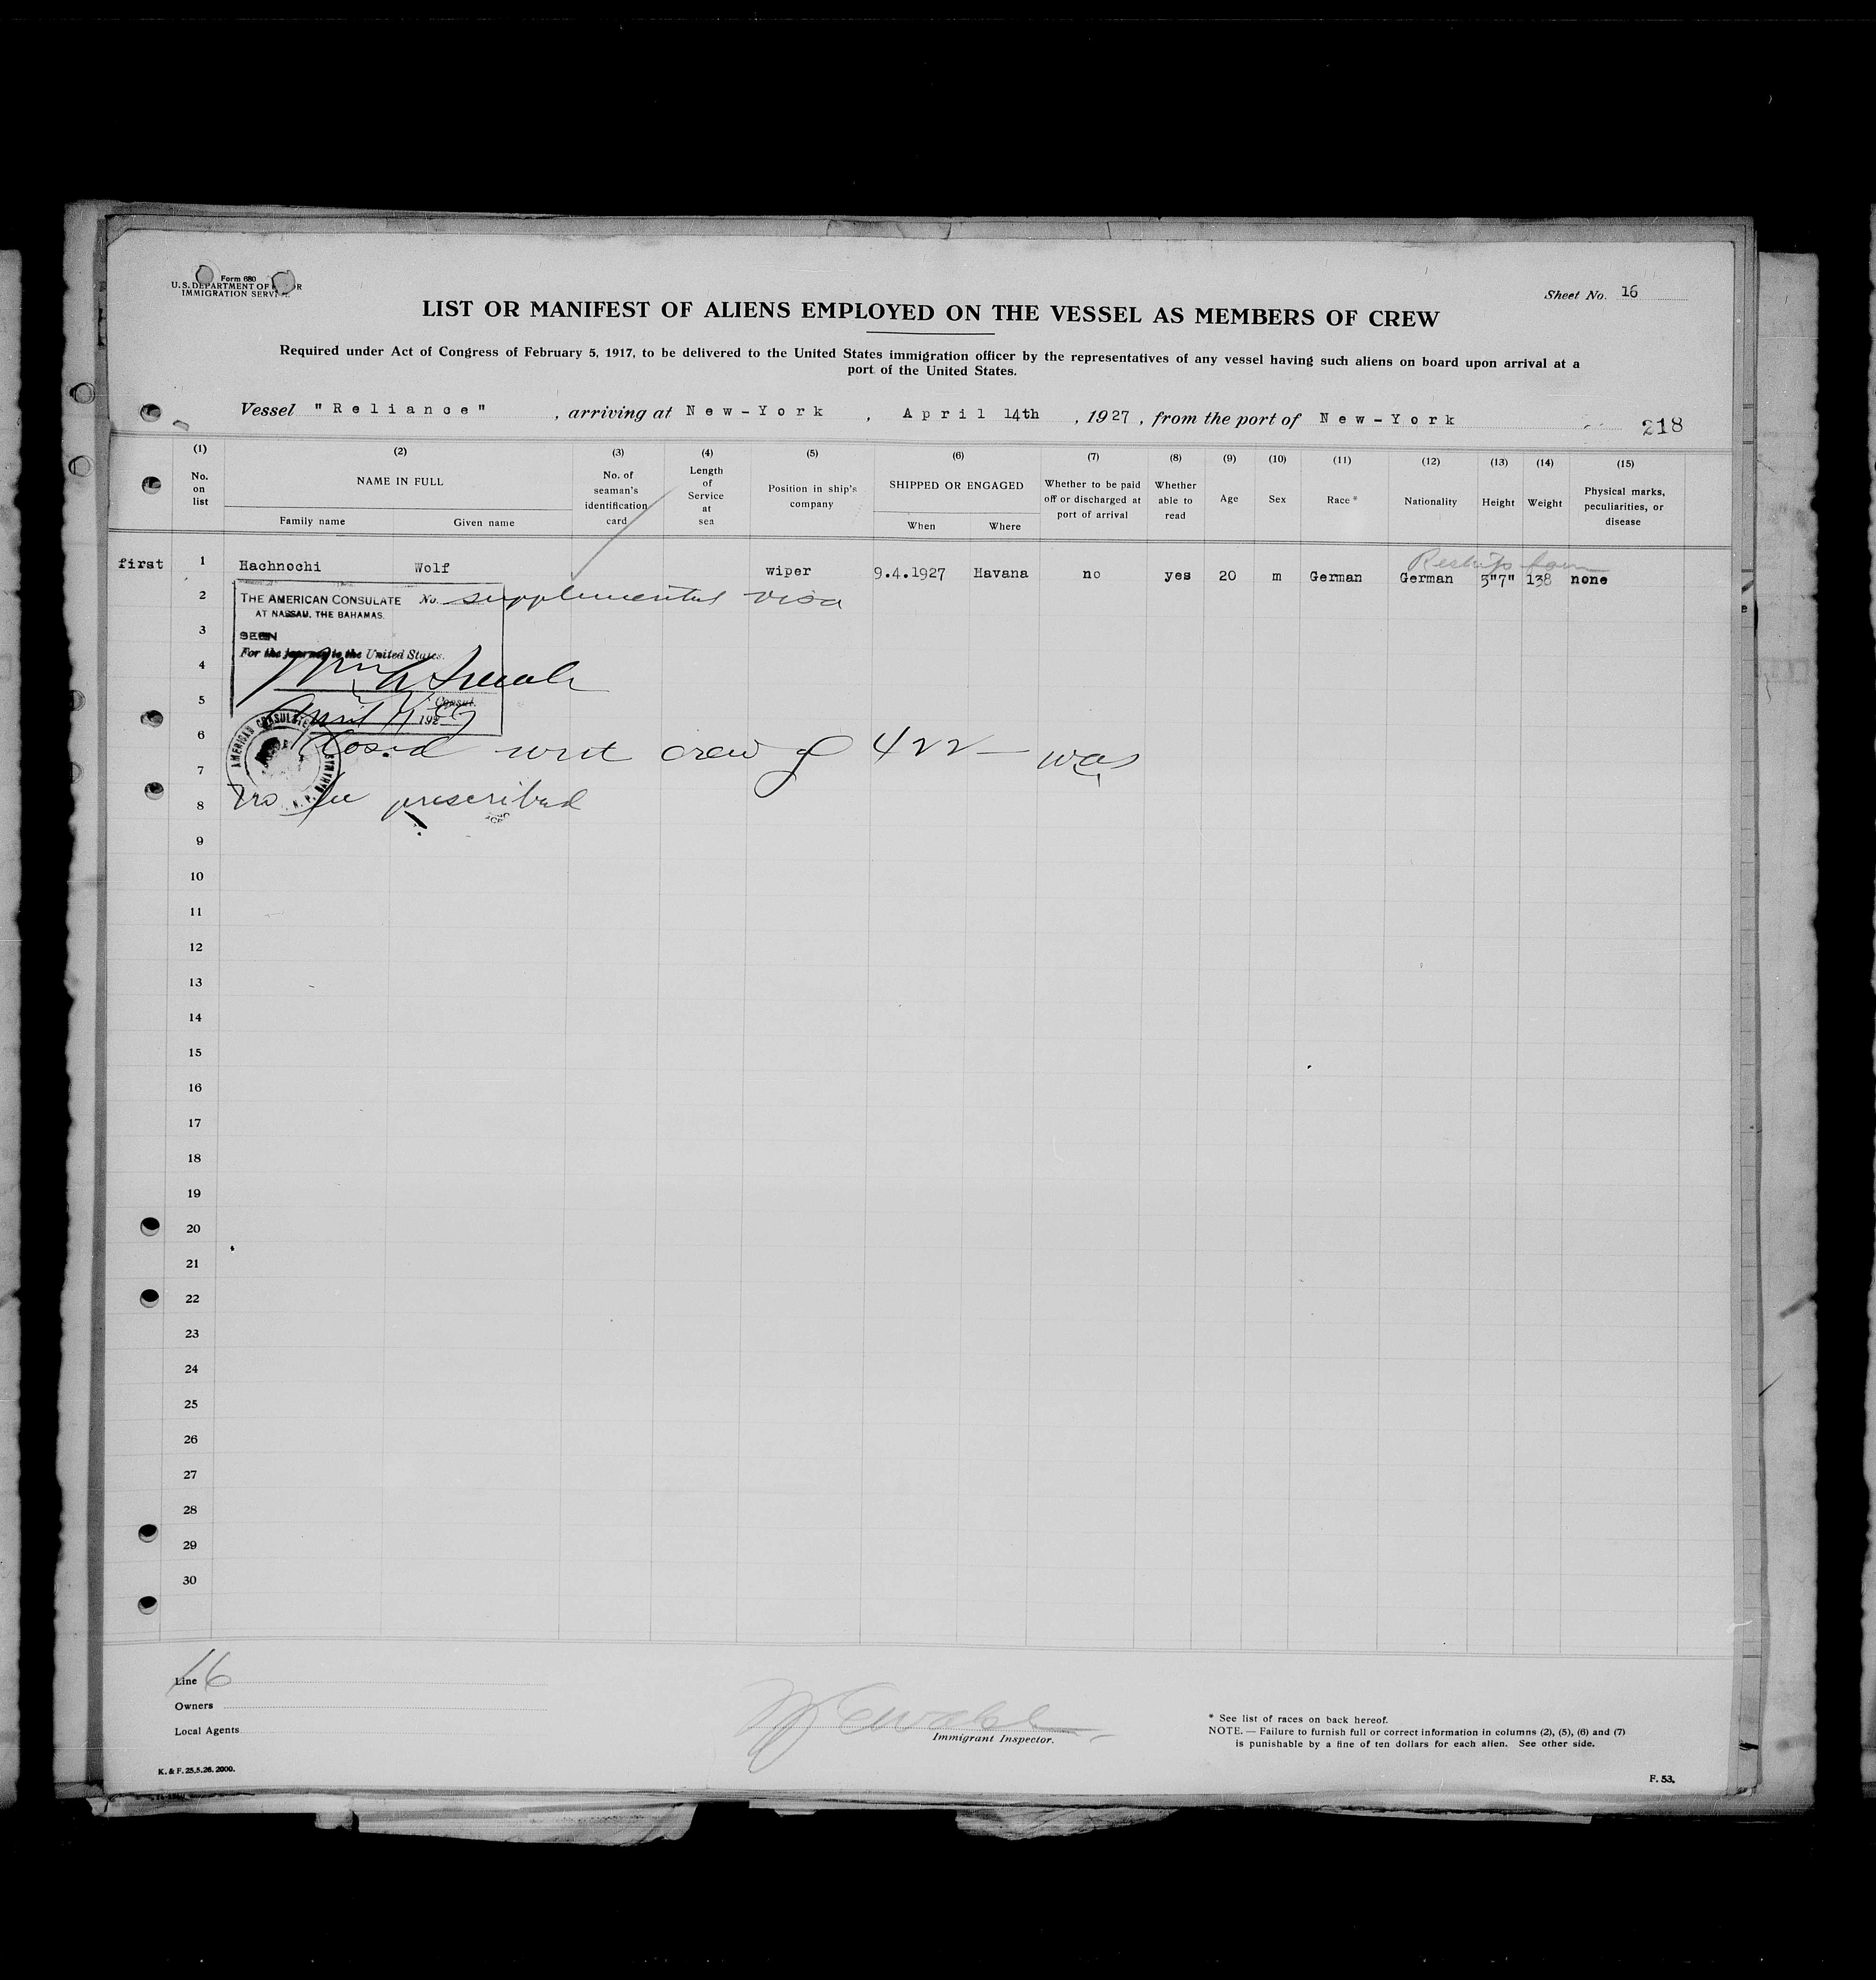 Form 680
U.S. DEPARTMENT OF
IMMIGRATION SERVI
Sheet No. 16
LIST OR MANIFEST OF ALIENS EMPLOYED ON THE VESSEL AS MEMBERS OF CREW
Required under Act of Congress of February 5, 1917, to be delivered to the United States immigration officer by the representatives of any vessel having such aliens on board upon arrival at a
port of the United States.
Vessel "Reliance" , arriving at New-York , April 14th , 1927 , from the port of New-York
218
(1) (2) (3) (4) (5) (6) (7) (8) (9) (10) (11) (12) (13) (14) (15)
No. on list
NAME IN FULL
Family name Given name
No. of seaman's identification card
Length of Service at sea
Position in ship's company
SHIPPED OR ENGAGED
When Where
Whether to be paid off or discharged at port of arrival
Whether able to read
Age
Sex
Race *
Nationality
Height
Weight
Physical marks, peculiarities, or disease
first 1 Hachnochi Wolf wiper 9.4.1927 Havana no yes 20 m German German 5"7" 138 none
2
THE AMERICAN CONSULATE No. supplemental visa
AT NASSAU, THE BAHAMAS.
3
SEEN
For the journey to the United States.
4
5
Consul.
April 192
6
AMERICAN CONSULATE
crew of 422 was
7
8
no fee prescribed
9
10
11
12
13
14
15
16
17
18
19
20
21
22
23
24
25
26
27
28
29
30
Line 16
Owners
Local Agents
Immigrant Inspector.
* See list of races on back hereof.
NOTE. — Failure to furnish full or correct information in columns (2), (5), (6) and (7)
is punishable by a fine of ten dollars for each alien. See other side.
K. & F. 25.5.26. 2000.
F. 53.